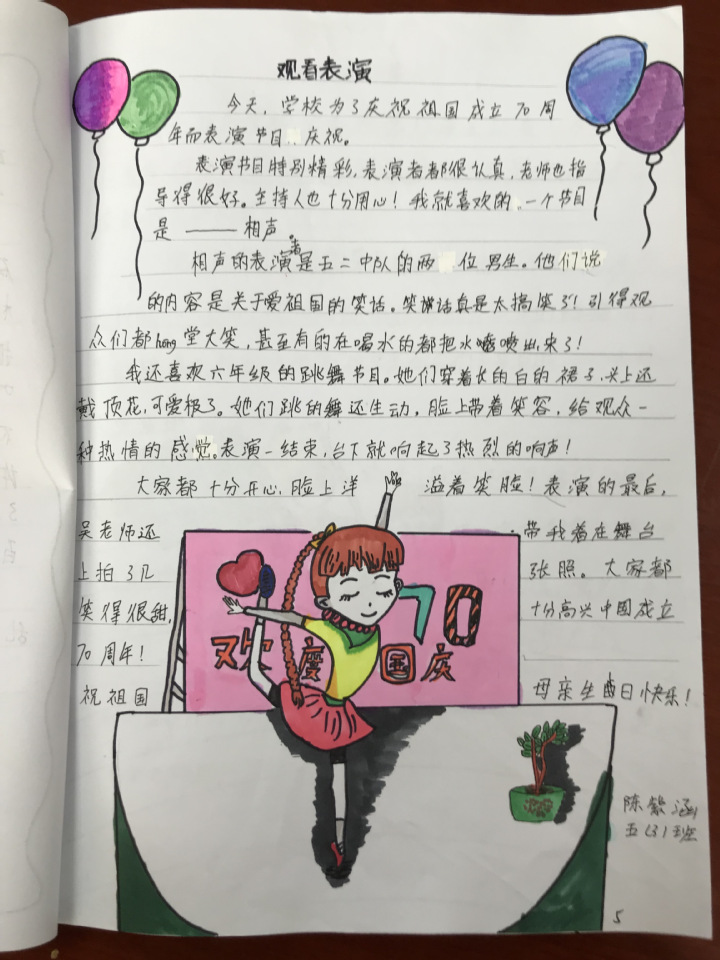 观看表演
今天，学校为了庆祝祖国成立70周
年而表演节目 庆祝。
表演节目特别精彩，表演者都很认真，老师也指
导得很好。主持人也十分用心！我就喜欢的 一个节目
是——相声。
相声的表演者是五二中队的两 位男生。他们说
的内容是关于爱祖国的笑话。笑话真是太搞笑了！引得观
众们都hong堂大笑，甚至有的在喝水的都把水喷出来了！
我还喜欢六年级的跳舞节目。她们穿着长的白的裙子，头上还
戴顶花，可爱极了。她们跳的舞还生动，脸上带着笑容，给观众一
种热情的感觉。表演一结束，台下就响起了热烈的响声！
大家都十分开心，脸上洋 溢着笑脸！表演的最后，
吴老师还 带我着在舞台
上拍了几 张照。大家都
笑得很甜， 十分高兴中国成立
70周年！
祝祖国 母亲生日快乐！
70
欢度国庆
陈 涵
五（3）班
5